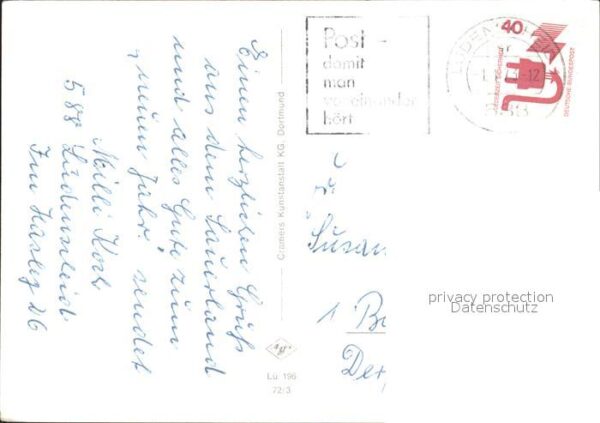 Einen herzlichen Gruß
aus dem Sauerland
und alles Gute zum
"neuen Jahr" sendet
Milli Korb
588 Lüdenscheid
Im Hasley 26
Cramers Kunstanstalt KG, Dortmund
Lü 196
72/3
Post -
damit
man
voneinander
hört
LÜDENSCHEID
-12
588
40
DEUTSCHE BUNDESPOST
Susan
1 B
De
privacy protection
Datenschutz